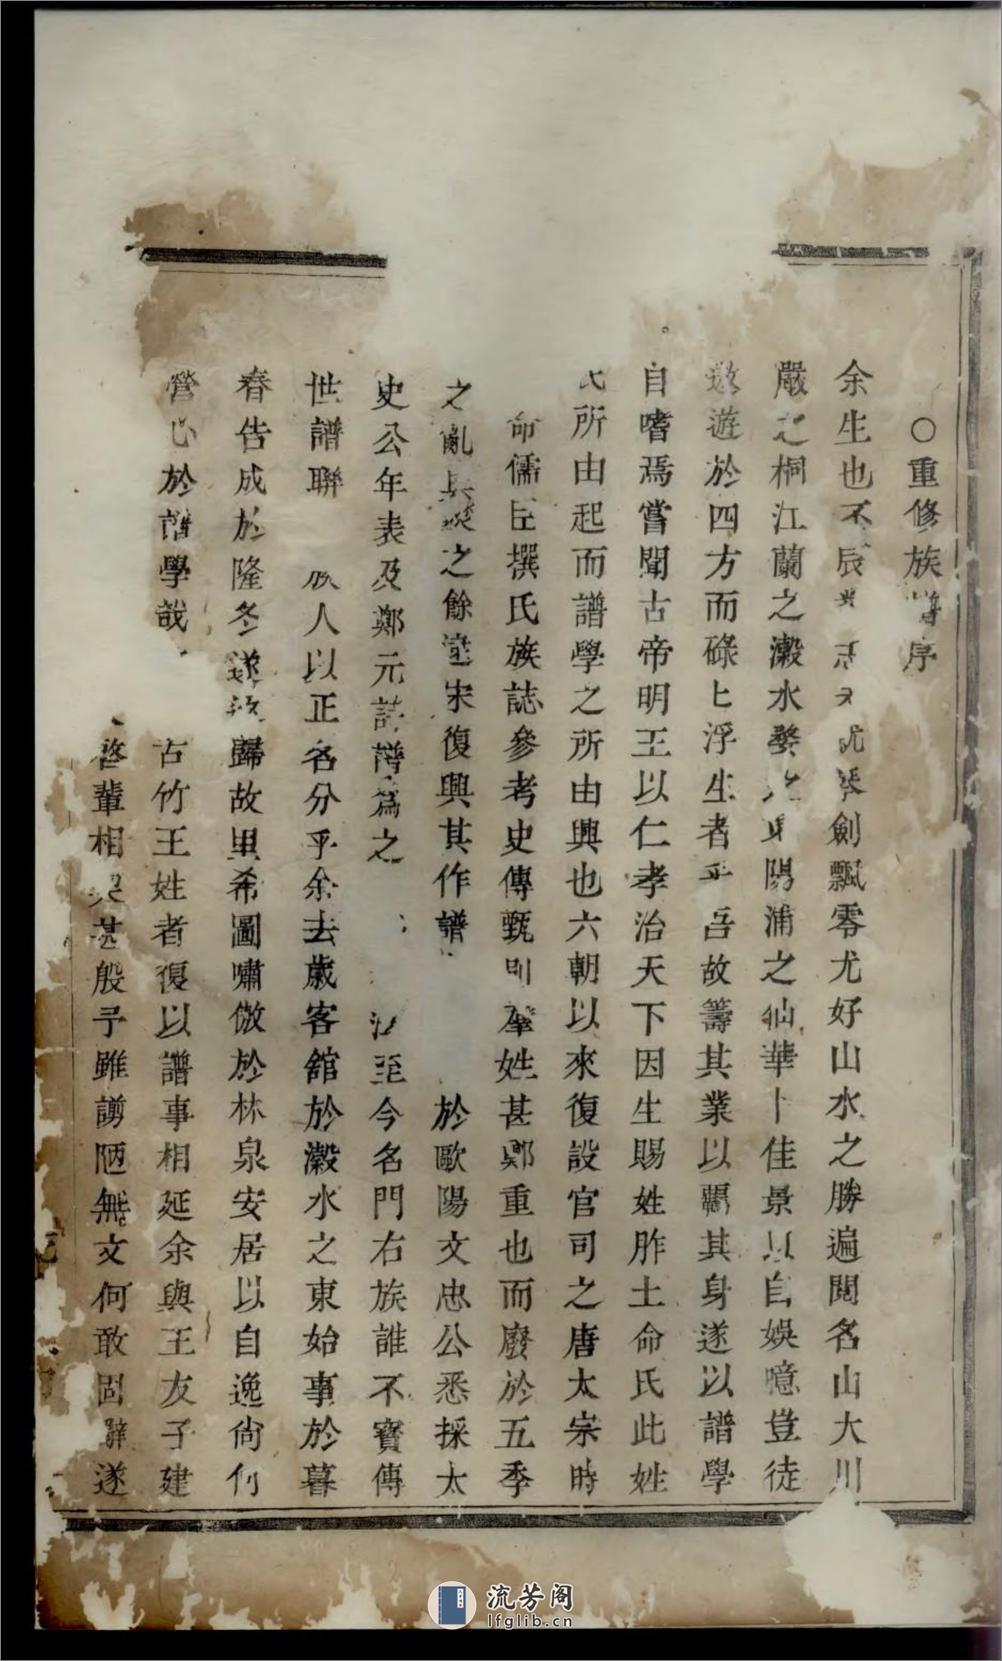 ○重修族譜序
余生也不辰 琴劍飄零尤好山水之勝遍閱名山大川
嚴之桐江蘭之瀫水婺 東陽浦之仙華卜佳景以自娛噫豈徒
遨遊於四方而碌匕浮生者乎吾故籌其業以羈其身遂以譜學
自嗜焉嘗聞古帝明王以仁孝治天下因生賜姓胙土命氏此姓
氏所由起而譜學之所由興也六朝以來復設官司之唐太宗時
命儒臣撰氏族誌參考史傳甄別 姓甚鄭重也而廢於五季
之亂 之餘 宋復興其作譜 於歐陽文忠公悉採太
史公年表及鄭元 譜為之 法至今名門右族誰不寶傳
世譜聯 族人以正名分乎余去歲客館於瀫水之東始事於暮
春告成於隆冬遂 歸故里希圖嘯傲於林泉安居以自逸尙何
營心於譜學哉 古竹王姓者復以譜事相延余與王友子建
輩相 甚殷予雖謭陋無文何敢固辭遂
流芳阁
lfglib.cn